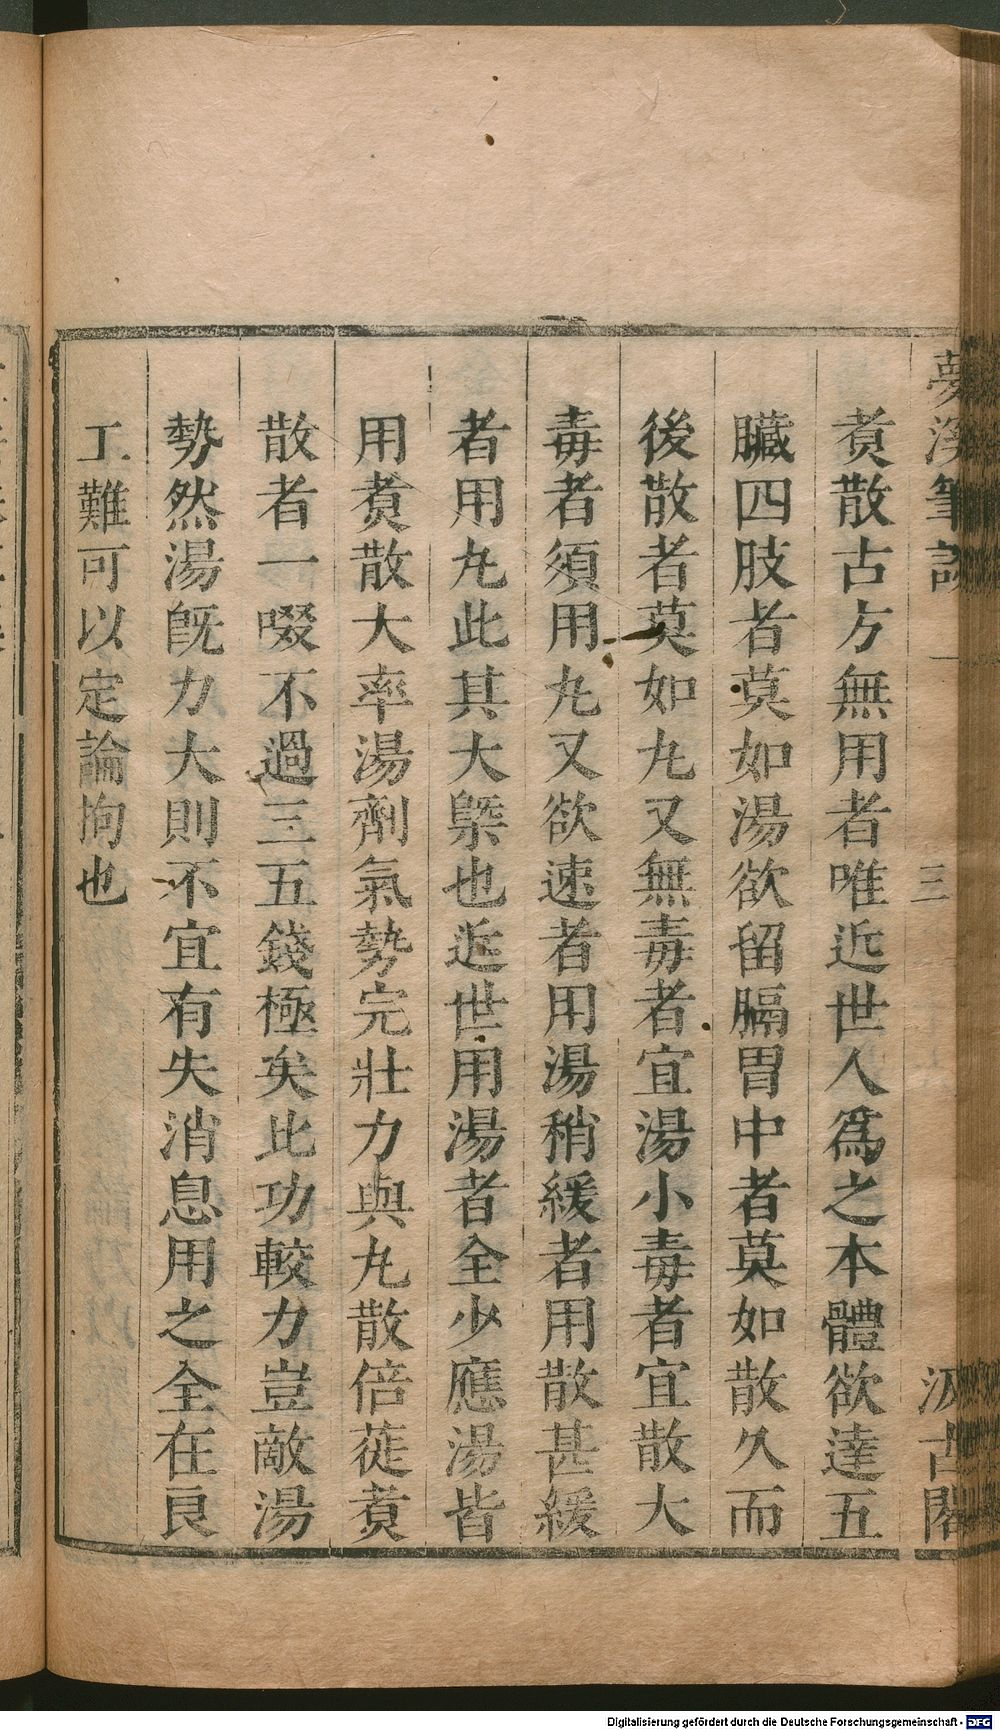 夢溪筆談 一 三 汲古閣
煑散古方無用者唯近世人爲之本體欲達五
臟四肢者莫如湯欲留膈胃中者莫如散久而
後散者莫如丸又無毒者宜湯小毒者宜散大
毒者須用丸又欲速者用湯稍緩者用散甚緩
者用丸此其大槩也近世用湯者全少應湯皆
用煑散大率湯劑氣勢完壯力與丸散倍蓰煑
散者一啜不過三五錢極矣比功較力豈敵湯
勢然湯旣力大則不宜有失消息用之全在良
工難可以定論拘也
Digitalisierung gefördert durch die Deutsche Forschungsgemeinschaft - DFG